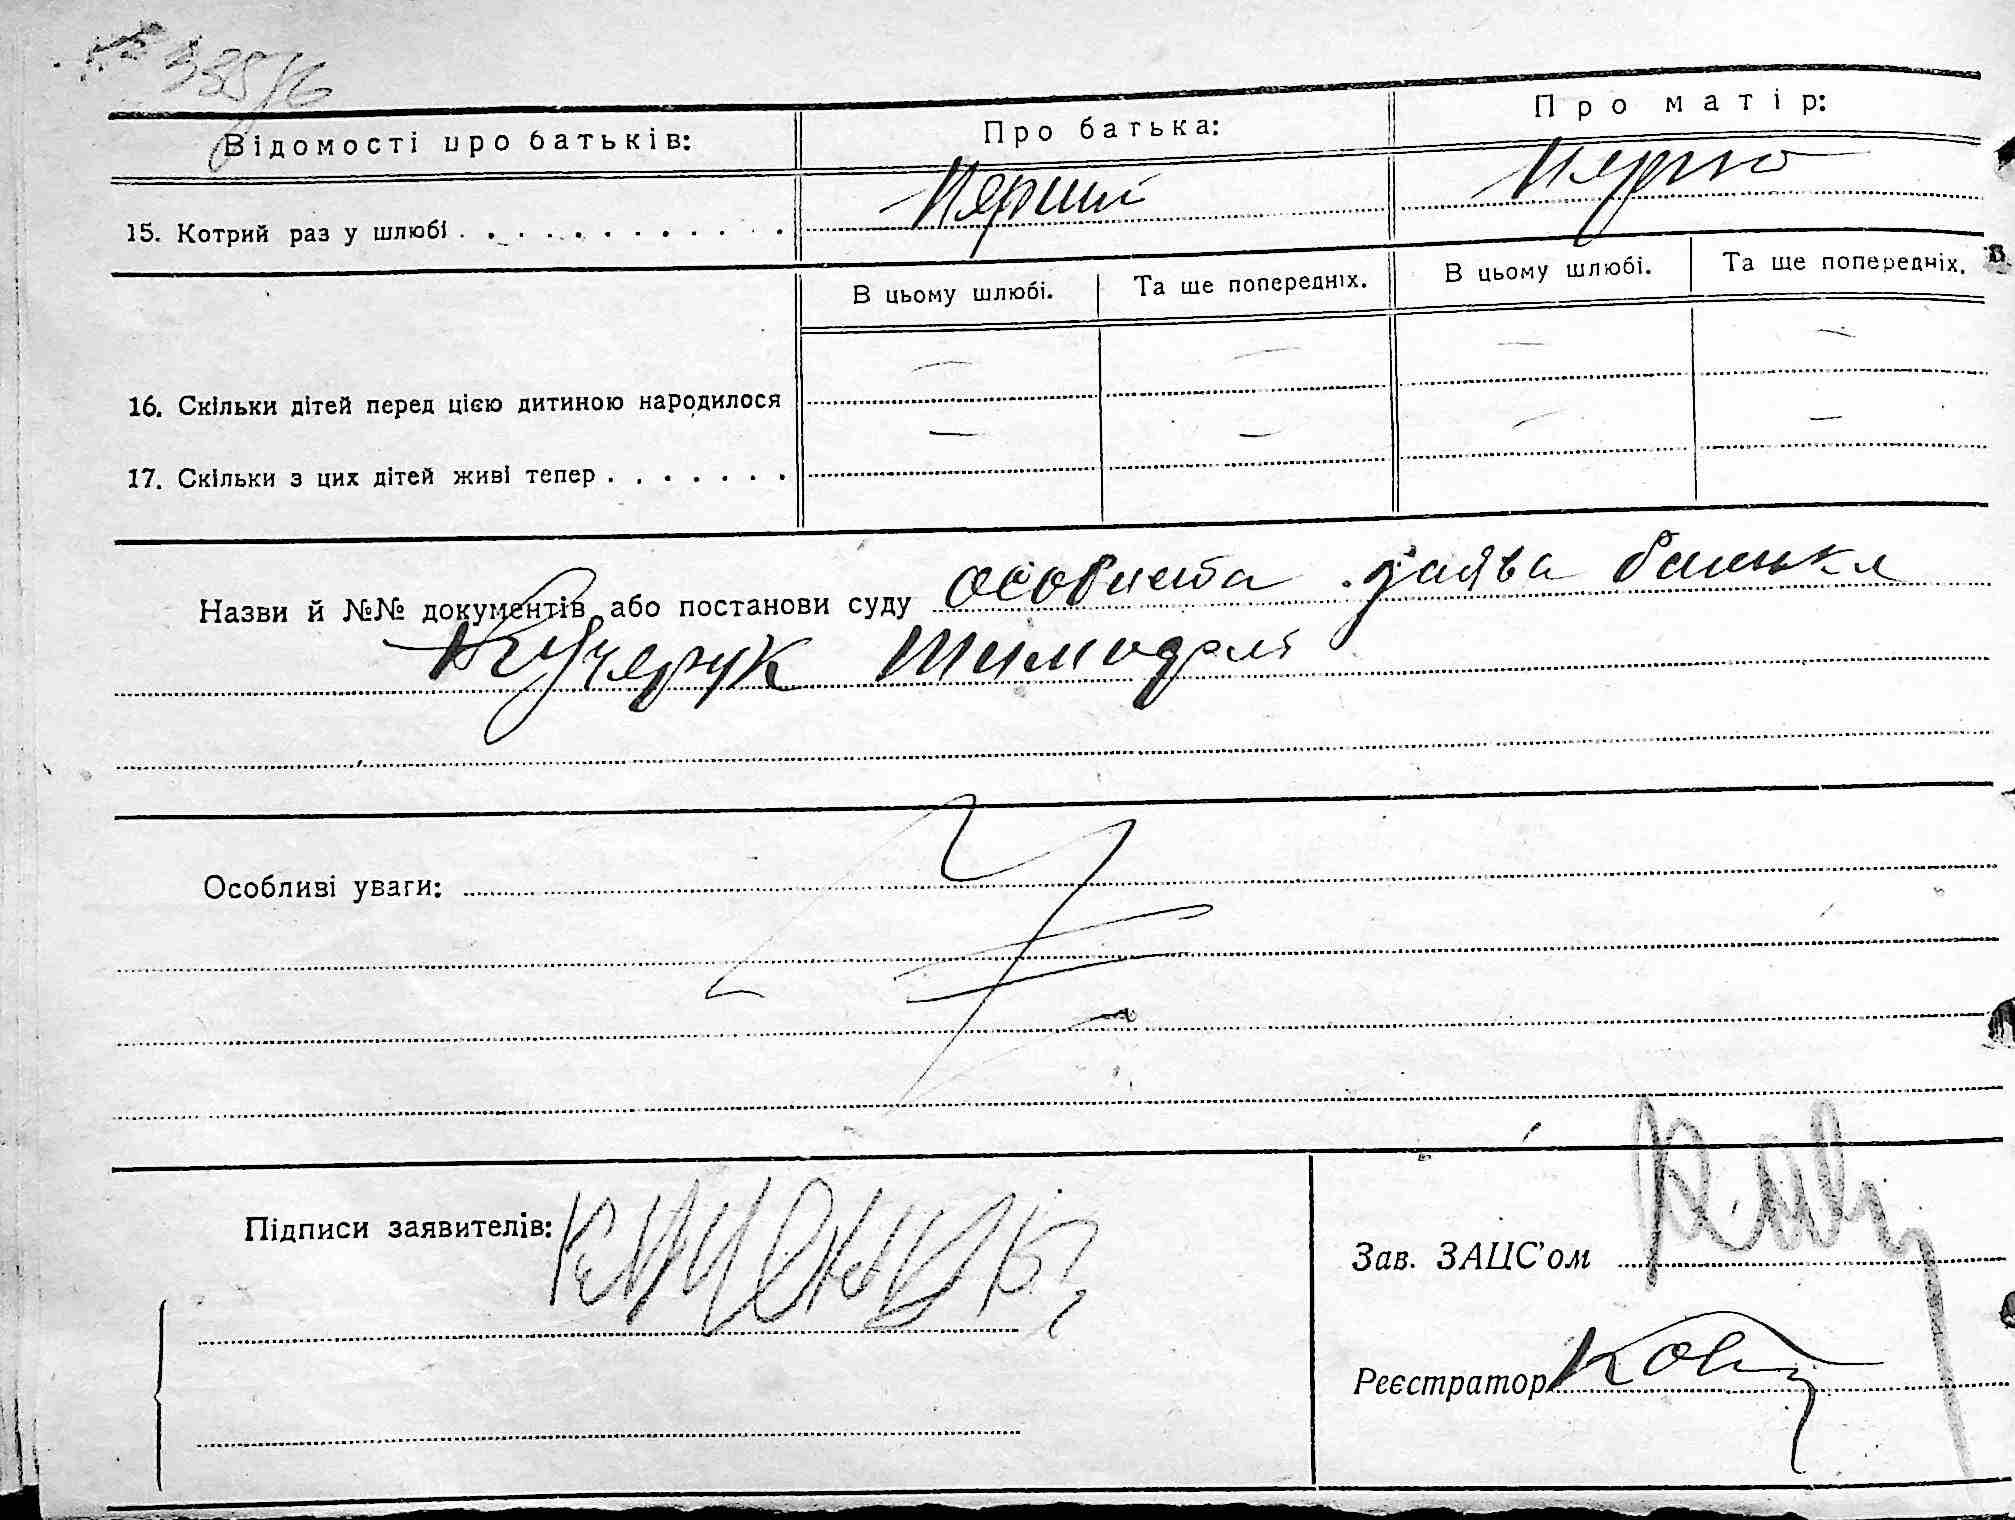 № 335/6
Відомості про батьків: Про батька: Про матір:
15. Котрий раз у шлюбі . . . . . . . . . . . . Перший
В цьому шлюбі. Та ще попередніх. В цьому шлюбі. Та ще попередніх.
16. Скільки дітей перед цією дитиною народилося — — — —
17. Скільки з цих дітей живі тепер . . . . . . . — — — —
Назви й №№ документів або постанови суду особиста заява батька
Кучерук
Особливі уваги:
Підписи заявителів:
Зав. ЗАЦС'ом
Реєстратор